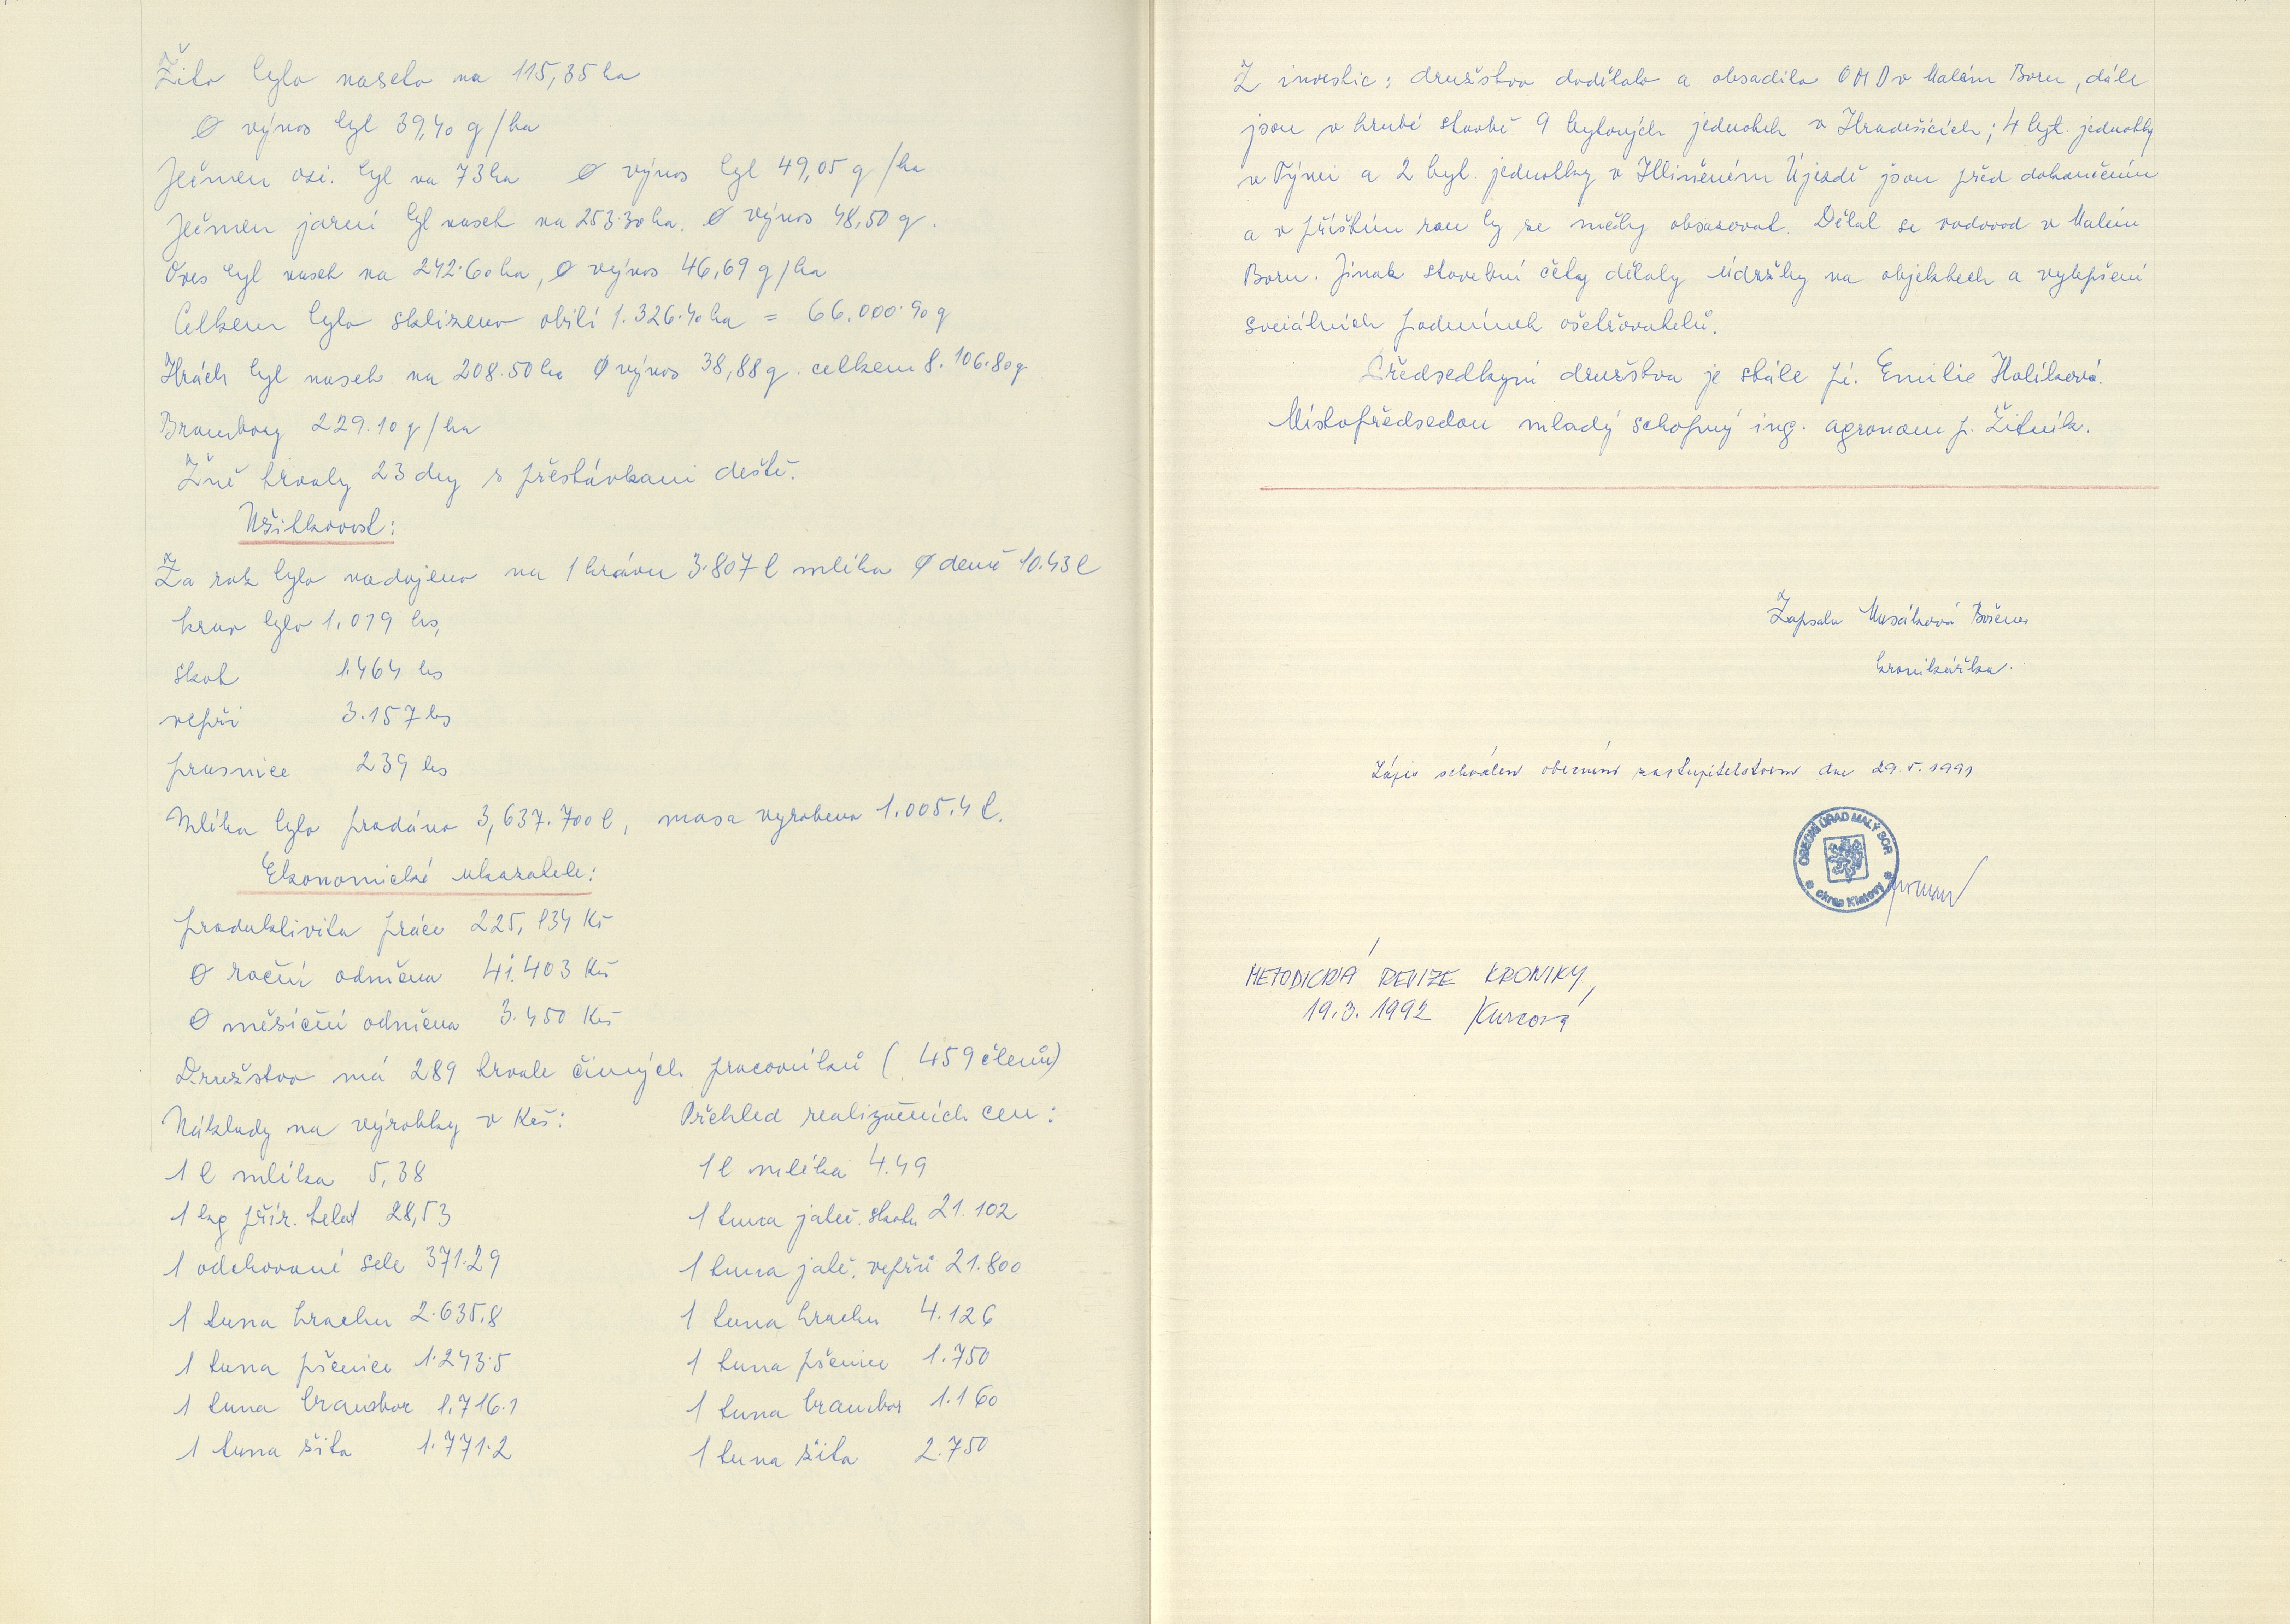 Žito bylo naseto na 115,35 ha
Ø výnos byl 39,40 q/ha
Ječmen ozi. byl na 73 ha Ø výnos byl 49,05 q/ha
Ječmen jarní byl naset na 253.30 ha. Ø výnos 48,50 q.
Oves byl naset na 242.60 ha, Ø výnos 46,69 q/ha
Celkem bylo sklizeno obilí 1.326.40 ha = 66.000.90 q
Hrách byl naset na 208.50 ha Ø výnos 38,88 q. celkem 8.106.80 q
Brambory 229.10 q/ha
Žně trvaly 23 dny s přestávkami deště.
Užitkovost:
Za rok bylo nadojeno na 1 krávu 3.807 l mléka Ø denně 10.43 l
krav bylo 1.079 ks,
skot 1.464 ks
vepři 3.157 ks
prasnice 239 ks
Mléka bylo prodáno 3,637.700 l, masa vyrobeno 1.005.4 t.
Ekonomické ukazatele:
produktivita práce 225,834 Kč
Ø roční odměna 41.403 Kčs
Ø měsíční odměna 3.450 Kčs
Družstvo má 289 trvale činných pracovníků (459 členů)
Náklady na výrobky v Kčs: Přehled realizačních cen:
1 l mléka 5,38 1 l mléka 4.49
1 kg přír. telat 28,53 1 tuna jateč. skotu 21.102
1 odchované sele 371.29 1 tuna jateč. vepřů 21.800
1 tuna hrachu 2.635.8 1 tuna hrachu 4.126
1 tuna pšenice 1.243.5 1 tuna pšenice 1.750
1 tuna brambor 1.716.1 1 tuna brambor 1.160
1 tuna žita 1.771.2 1 tuna žita 2.750
Z investic: družstvo dodělalo a obsadilo OMD v Malém Boru, dále
jsou v hrubé stavbě 9 bytových jednotek v Hradešicích; 4 byt. jednotky
v Týnci a 2 byt. jednotky v Hliněném Újezdě jsou před dokončením
a v příštím roce by se měly obsazovat. Dělal se vodovod v Malém
Boru. Jinak stavební čety dělaly údržby na objektech a vylepšení
sociálních podmínek ošetřovatelů.
Předsedkyní družstva je stále pí. Emilie Holíková.
Místopředsedou mladý schopný ing. agronom p. Žitník.
Zapsala Musálková Božena
kronikářka.
Zápis schválen obecním zastupitelstvem dne 29.5.1991
OBECNÍ ÚŘAD MALÝ BOR
okres Klatovy
METODICKÁ REVIZE KRONIKY,
19.3.1992 Kurcová